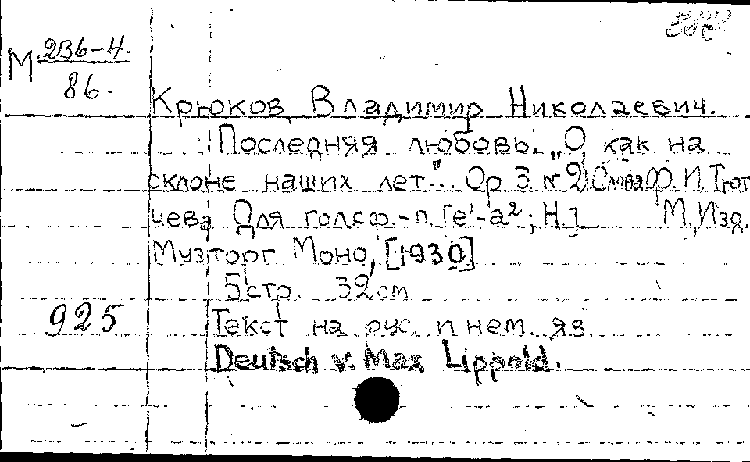 М 2В6-4.
86.
Крюков, Владимир Николаевич.
Последняя любовь. „О как на
склоне наших лет". Op 3 № 2. Слова Ф. И. Тют
чева Для голоса ф-п. [e¹-a²; H.] М, Изд.
Музторг Моно, [1930]
5 стр. 32 см
925 Текст на рус. и нем. яз
Deutsch v. Max Lippold.